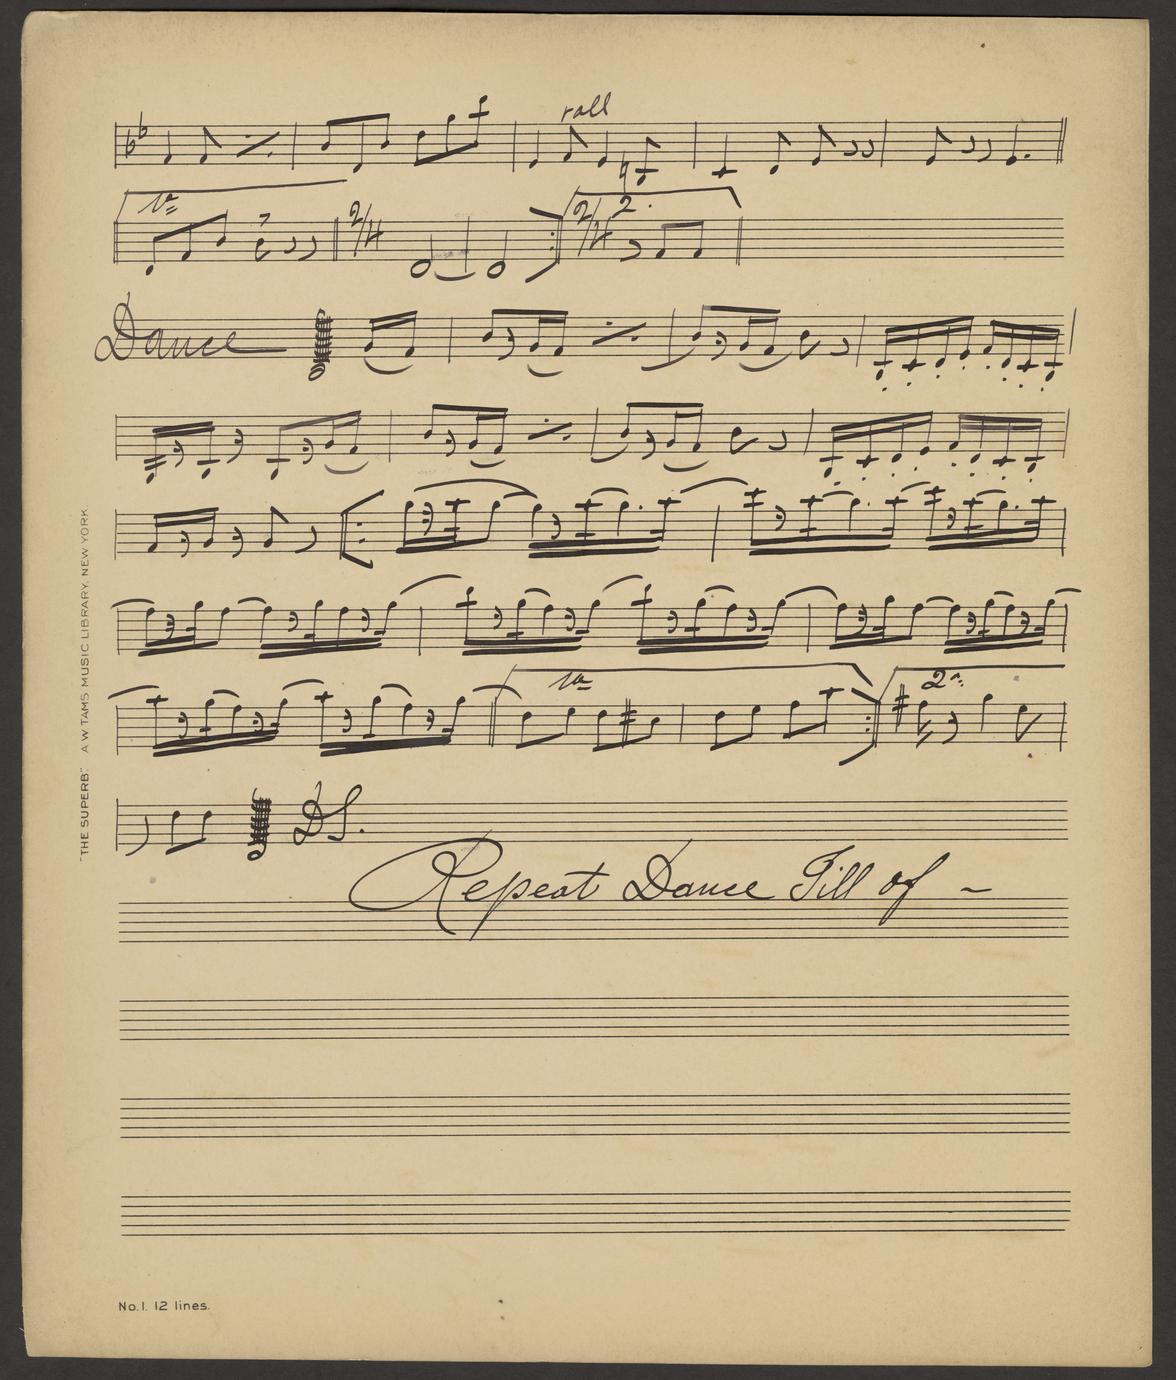 rall
1a
2/4
2/4 2.
Dance
1a
2a
D.S.
Repeat Dance Till of -
"THE SUPERB" A.W. TAMS MUSIC LIBRARY, NEW YORK.
No. 1. 12 lines.